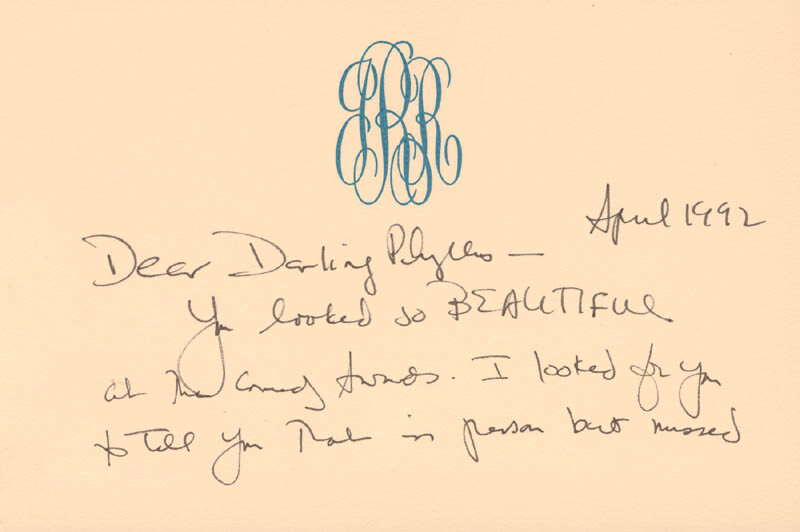 JRR
April 1992
Dear Darling Phyllis —
You looked so BEAUTIFUL
at the Comedy Awards. I looked for you
to tell you that in person but missed